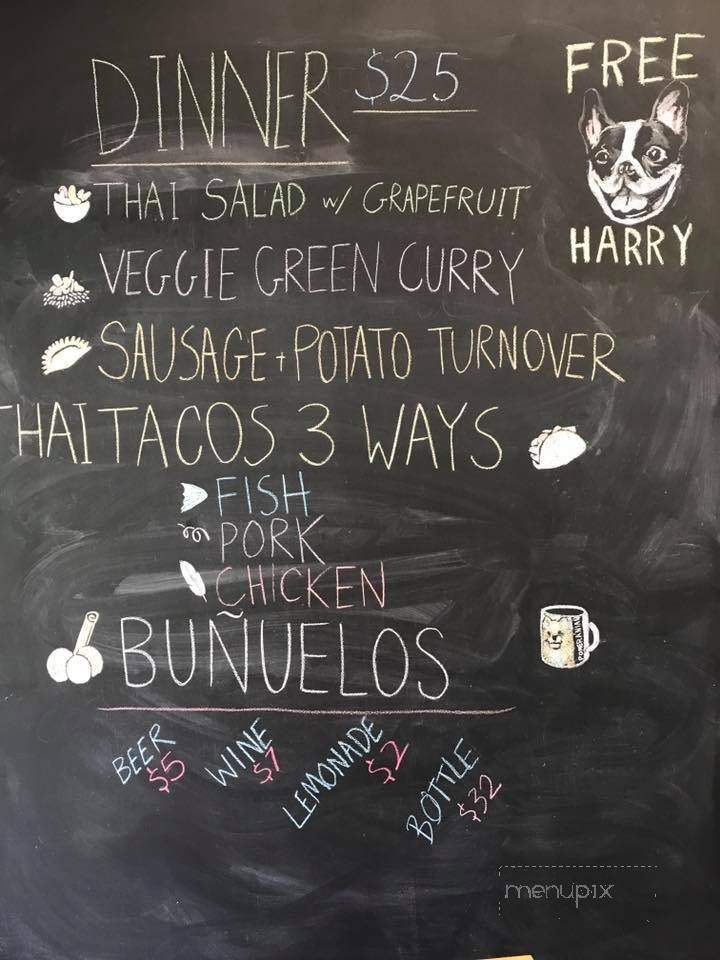 DINNER $25
FREE
HARRY
THAI SALAD w/ GRAPEFRUIT
VEGGIE GREEN CURRY
SAUSAGE + POTATO TURNOVER
THAI TACOS 3 WAYS
FISH
PORK
CHICKEN
BUÑUELOS
POMERANIAN
BEER $5
WINE $7
LEMONADE $2
BOTTLE $32
menupix